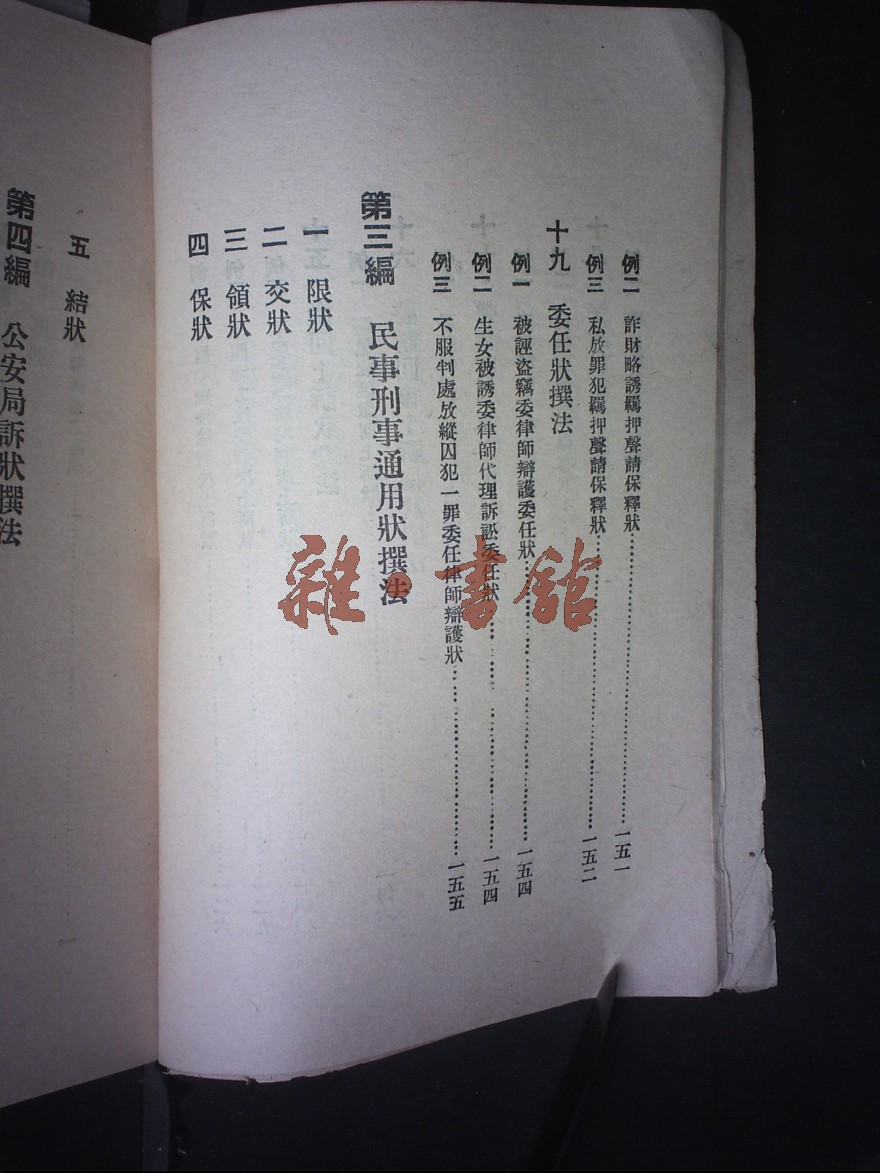 例二 詐財略誘羈押聲請保釋狀……一五一
例三 私放罪犯羈押聲請保釋狀……一五二
十九 委任狀撰法
例一 被誣盜竊委律師辯護委任狀……一五四
例二 生女被誘委律師代理訴訟委任狀……一五四
例三 不服判處放縱囚犯一罪委任律師辯護狀……一五五
第三編 民事刑事通用狀撰法
一 限狀
二 交狀
三 領狀
四 保狀
五 結狀
第四編 公安局訴狀撰法
雜·書館